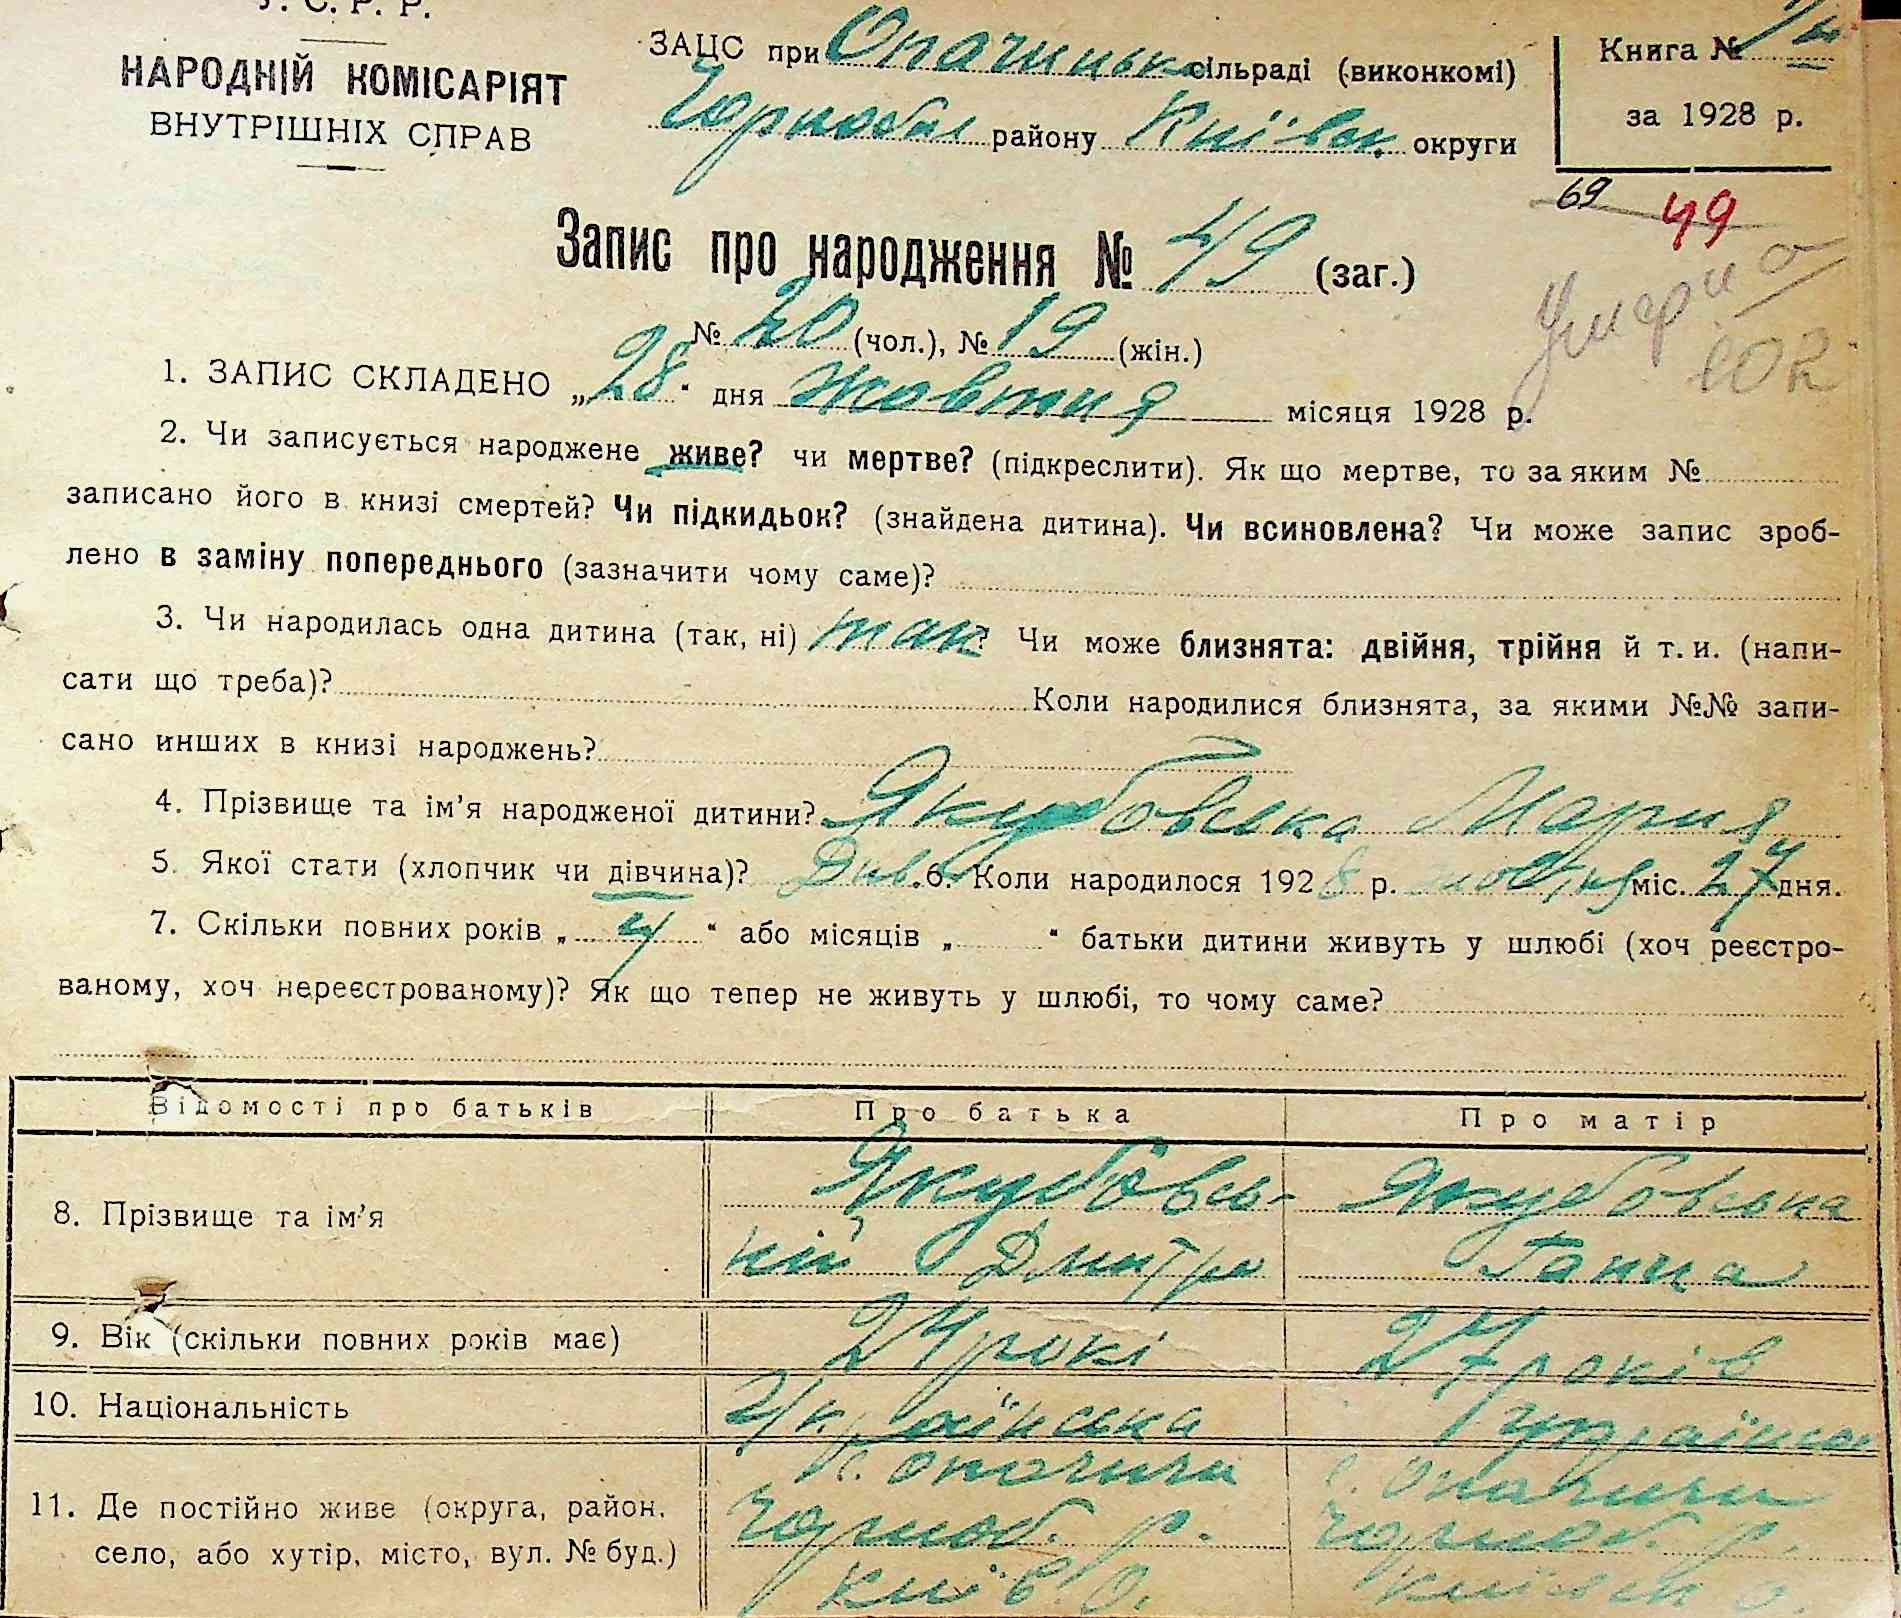 У. С. Р. Р.
НАРОДНІЙ КОМІСАРІЯТ
ВНУТРІШНІХ СПРАВ
ЗАЦС при Опачицьк сільраді (виконкомі)
Чорнобил району Київськ. округи
Книга №
за 1928 р.
69 49
Запис про народження № 49 (заг.)
Умерла
102
№ 20 (чол.), № 19 (жін.)
1. ЗАПИС СКЛАДЕНО „28“ дня жовтня місяця 1928 р.
2. Чи записується народжене живе? чи мертве? (підкреслити). Як що мертве, то за яким №
записано його в книзі смертей? Чи підкидьок? (знайдена дитина). Чи всиновлена? Чи може запис зроб-
лено в заміну попереднього (зазначити чому саме)?
3. Чи народилась одна дитина (так, ні) так? Чи може близнята: двійня, трійня й т. и. (напи-
сати що треба)? Коли народилися близнята, за якими №№ запи-
сано инших в книзі народжень?
4. Прізвище та ім’я народженої дитини? Якубовська Мария
5. Якої стати (хлопчик чи дівчина)? Дивч. 6. Коли народилося 1928 р. жовтня міс. 27 дня.
7. Скільки повних років „4“ або місяців „ “ батьки дитини живуть у шлюбі (хоч реєстро-
ваному, хоч нереєстрованому)? Як що тепер не живуть у шлюбі, то чому саме?
Відомості про батьків Про батька Про матір
8. Прізвище та ім’я
Якубовсь-
кий Дмитро
Якубовська
Ганна
9. Вік (скільки повних років має) 24 рокі 27 років
10. Національність Українська Українськ
11. Де постійно живе (округа, район,
село, або хутір, місто, вул. № буд.)
с. Опачичи
Чорноб. р.
Київ. О.
с. Опачичи
Чорноб. р.
Київськ о.